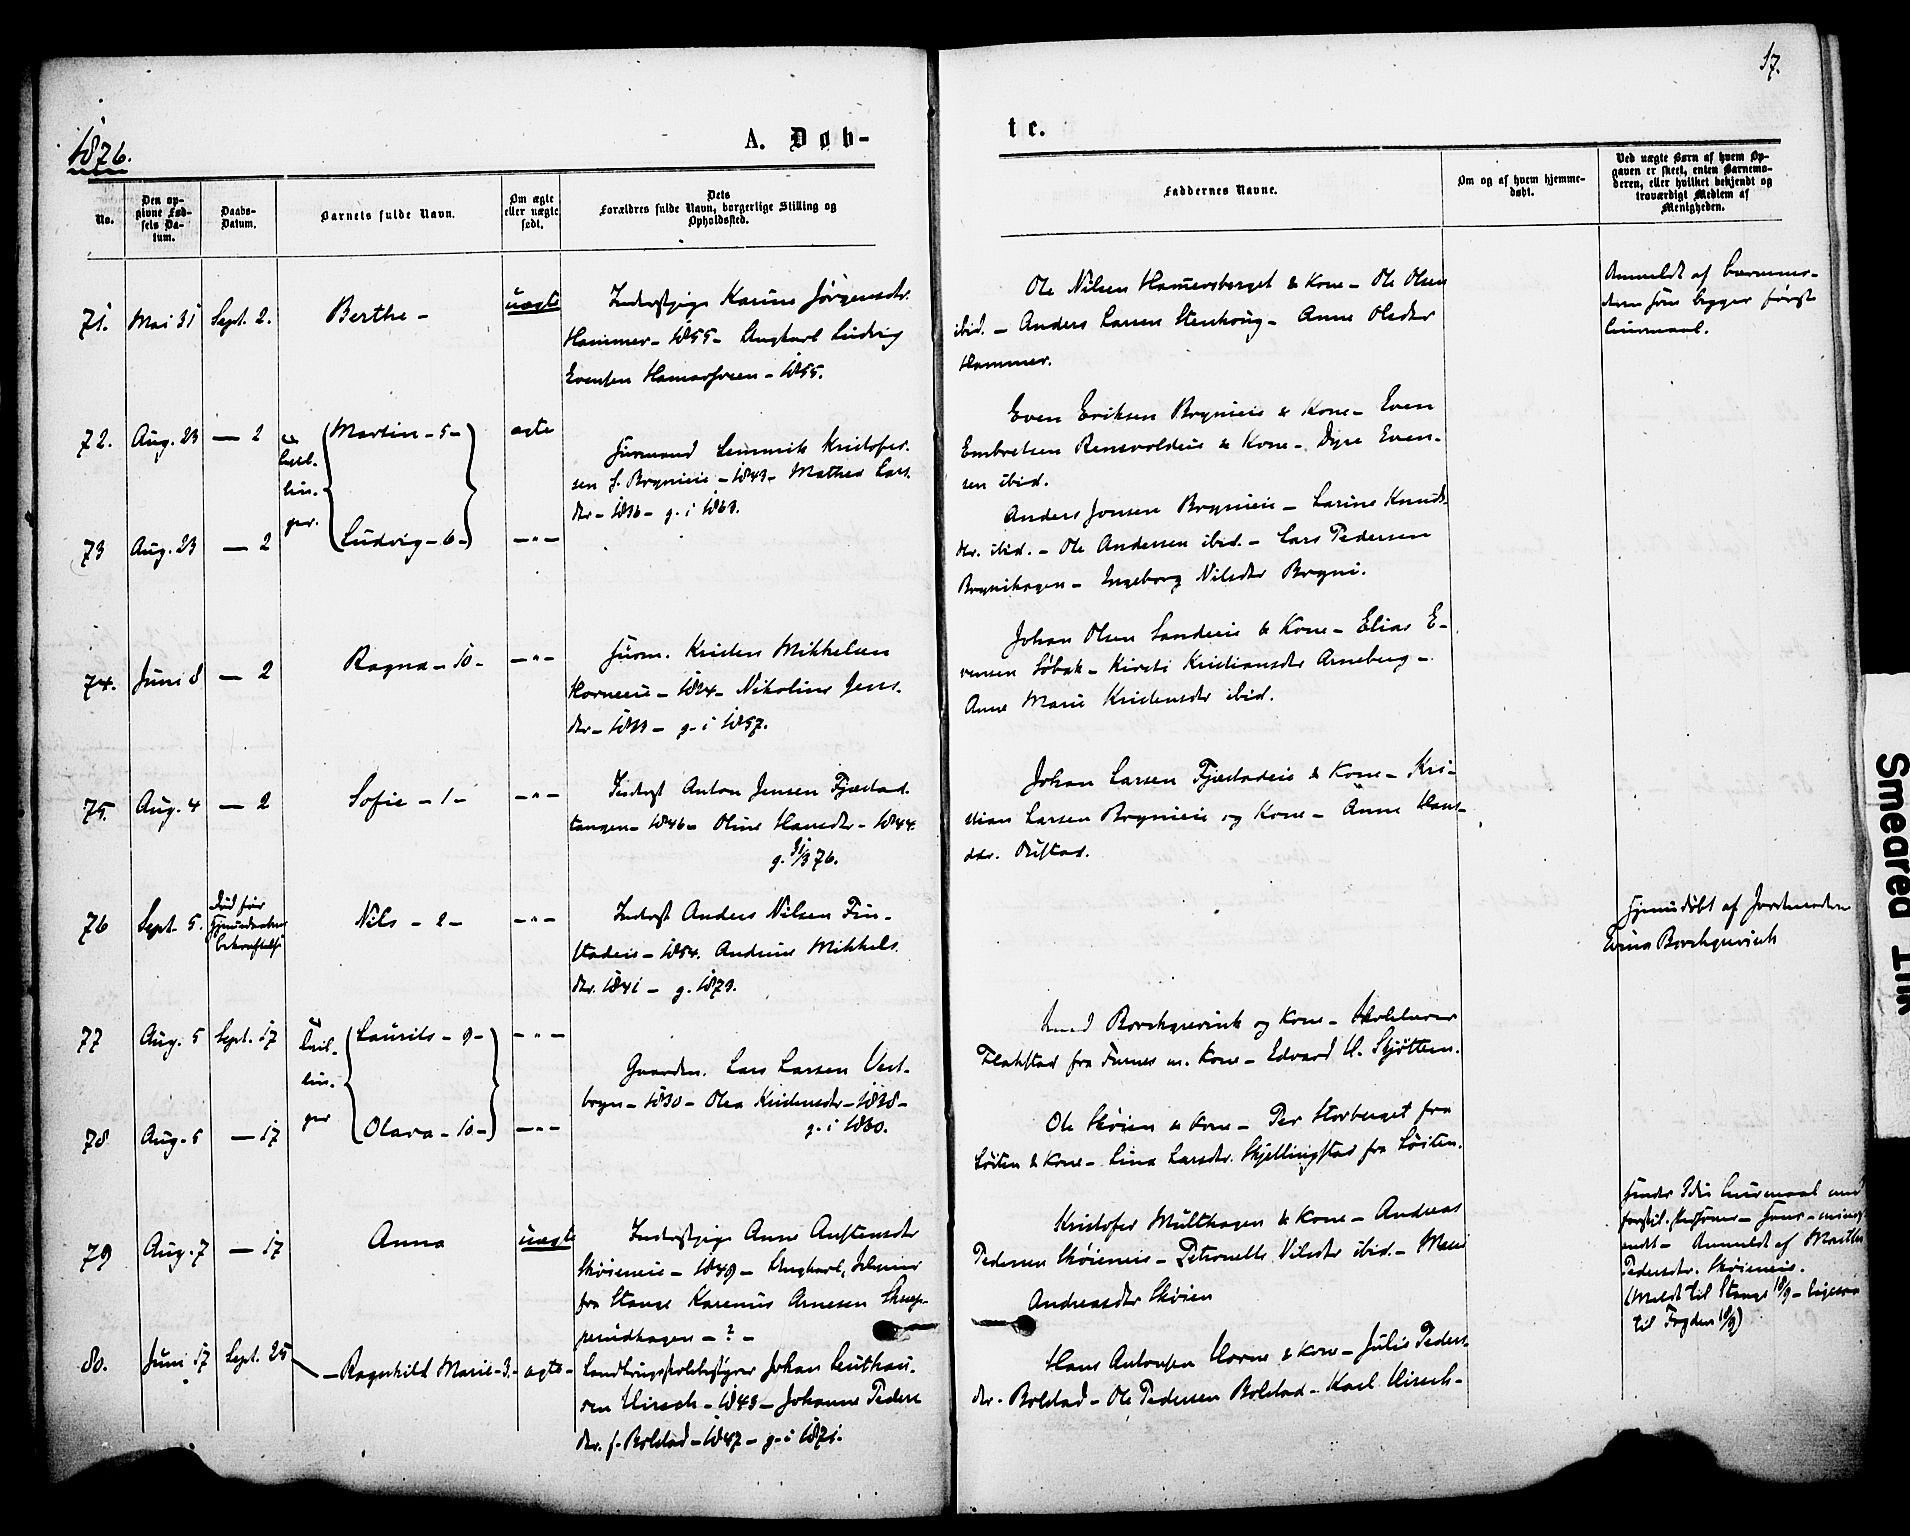 17.
1876.
A. Døb-
te.
No.
Den op-
givne Fød-
sels Da-
tum.
Daabs-
Datum.
Barnets fulde Navn.
Om ægte
eller uægte
født.
Dets
Forældres fulde Navn, borgerlige Stilling og
Opholdssted.
Faddernes Navne.
Om og af hvem hjemme-
døbt.
Ved uægte Børn af hvem Op-
gaven er skeet, enten Barnemo-
deren, eller hvilket bekjendt og
troværdigt Medlem af
Menigheden.
71. Mai 31 Sept. 2. Berthe - uægte
Inderstpige Karine Jørgensdtr.
Hammer - 1855 - Ungkarl Ludvig
Evensen Hamarsveen - 1855.
Ole Nilsen Hamersberget & Kone - Ole Olsen
ibid. - Anders Larsen Stenhoug - Anne Olsdtr
Hammer.
Anmeldt af
første
leiermaal.
72. Aug. 23 — 2 Martin - 5 - ægte
73 Aug. 23 — 2 Ludvig - 6 - — " —
Kristofer-
sen - 1843 - Mathea Lars.
dtr - 1836 - g. i 1863.
Even Eriksen Brynieie & Kone - Even
Embretsen Rensvoldeie & Kone - Dyre Even-
sen ibid.
Anders Jonsen Brynieie - Larine Knuds-
dtr. ibid. - Ole Andersen ibid. - Lars Pedersen
Brynihagen - Ingeborg Nilsdtr Bryni.
74. Juni 8 — 2 Ragna - 10 - — " —
Husm. Kristen Mikkelsen
Horneeie - 1834 - Nikoline Jens.
dtr - 1833 - g. i 1857.
Johan Olsen Sandeeie & Kone - Elias E-
vensen Søbak - Kirsti Kristiansdtr Arneberg -
Anne Marie Kristensdtr ibid.
75. Aug. 4 — 2 Sofie - 1 - — " —
Inderst Anton Jensen Fjæstad-
tangen - 1846 - Oline Hansdtr - 1844.
g. 31/3 76.
Johan Larsen Fjæstadeie & Kone - Kri-
stian Larsen Brynieie og Kone - Anne Hans-
dtr.
76 Sept. 5. Død før
Hjemmedaabens
bekræftelse
Nils - 2 - — " —
Inderst Anders Nilsen Fin-
stadeie - 1854. Andrine Mikkels
dtr. 1841 - g. 1873.
Hjemmedøbt af Jordmoderen
Borchgrevinck
77 Aug. 5 Sept. 17 Tvil-
lin-
ger
Laurits - 9 - — " —
78 Aug. 5 — 17 Olava - 10 - — " —
Gaardm. Lars Larsen Vest-
bryn - 1830 - Olea Kristensdtr - 1838 -
g. i 1860.
Borchgrevink og Kone -
Flakstad fra Furnes m. Kone - Edvard H. Skjøtten.
Ole Skøien & Kone - Per Storberget fra
Løiten & Kone - Lina Larsdtr. Skjellingstad fra Løiten.
79 Aug. 7 — 17 Anna uægte
Inderstpige Anne Austensdtr
Skøieneie - 1849 - Ungkarl,
fra Stange Karenus Arnesen
- ? -
Kristofer Multhagen & Kone - Andreas
Pedersen Skøieneie - Petronelle Nilsdtr ibid. - Mari
Andreasdtr Skøien
leiermaal med
Anmeldt af Marthe
Pedersdtr. Skøieneie.
(Meldt til Stange 18/9 - ligesaa
til Fogden 18/9)
80. Juni 17 Sept. 25 - Ragnhild Marie - 3. - ægte -
Landbrugsskolebestyrer Johan Leuthau-
sen Hirsch - 1843 - Johanne Peders
dtr. f. Bolstad - 1847 - g. i 1871.
Hans Antonsen Horne & Kone - Julie Peders-
dtr. Bolstad - Ole Pedersen Bolstad - Karl Hirsch -
Smeared Ink